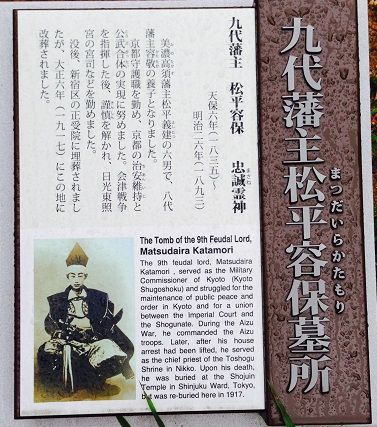 九代藩主松平容保墓所
まつだいらかたもり
九代藩主 松平容保 忠誠霊神
まさね
天保六年(一八三五)~
明治二六年(一八九三)
美濃高須藩主松平義建の六男で、八代
藩主容敬の養子となりました。
京都守護職を勤め、京都の治安維持と
公武合体の実現に努めました。会津戦争
を指揮した後、謹慎を解かれ、日光東照
宮の宮司などを勤めました。
没後、新宿区の正受院に埋葬されまし
たが、大正六年(一九一七)にこの地に
改葬されました。
The Tomb of the 9th Feudal Lord,
Matsudaira Katamori
The 9th feudal lord, Matsudaira
Katamori , served as the Military
Commissioner of Kyoto (Kyoto
Shugoshoku) and struggled for the
maintenance of public peace and
order in Kyoto and for a union
between the Imperial Court and
the Shogunate. During the Aizu
War, he commanded the Aizu
troops. Later, after his house
arrest had been lifted, he served
as the chief priest of the Toshogu
Shrine in Nikko. Upon his death,
he was buried at the Shojuin
Temple in Shinjuku Ward, Tokyo,
but was re-buried here in 1917.